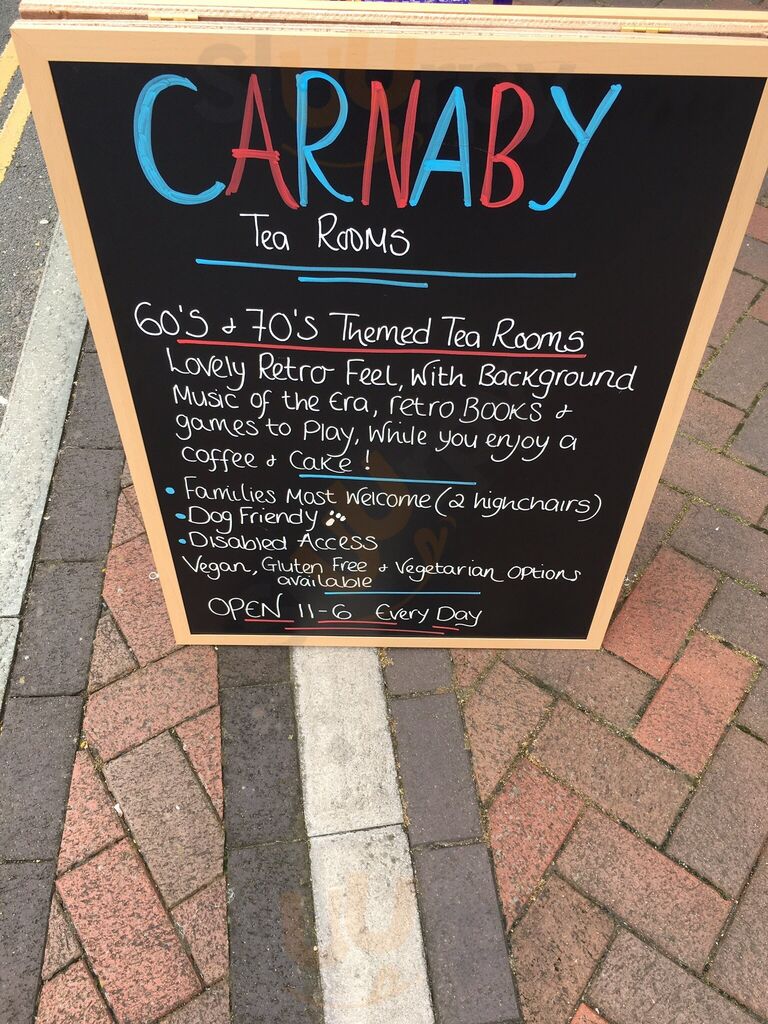 CARNABY
Tea ROOMS
60'S & 70'S Themed Tea Rooms
Lovely Retro Feel, With Background
Music of the Era, retro BOOKS &
games to Play, While you enjoy a
coffee & Cake !
• Families Most Welcome (2 highchairs)
• Dog Friendy
• Disabled Access
Vegan, Gluten Free & Vegetarian Options
available
OPEN 11-6 Every Day